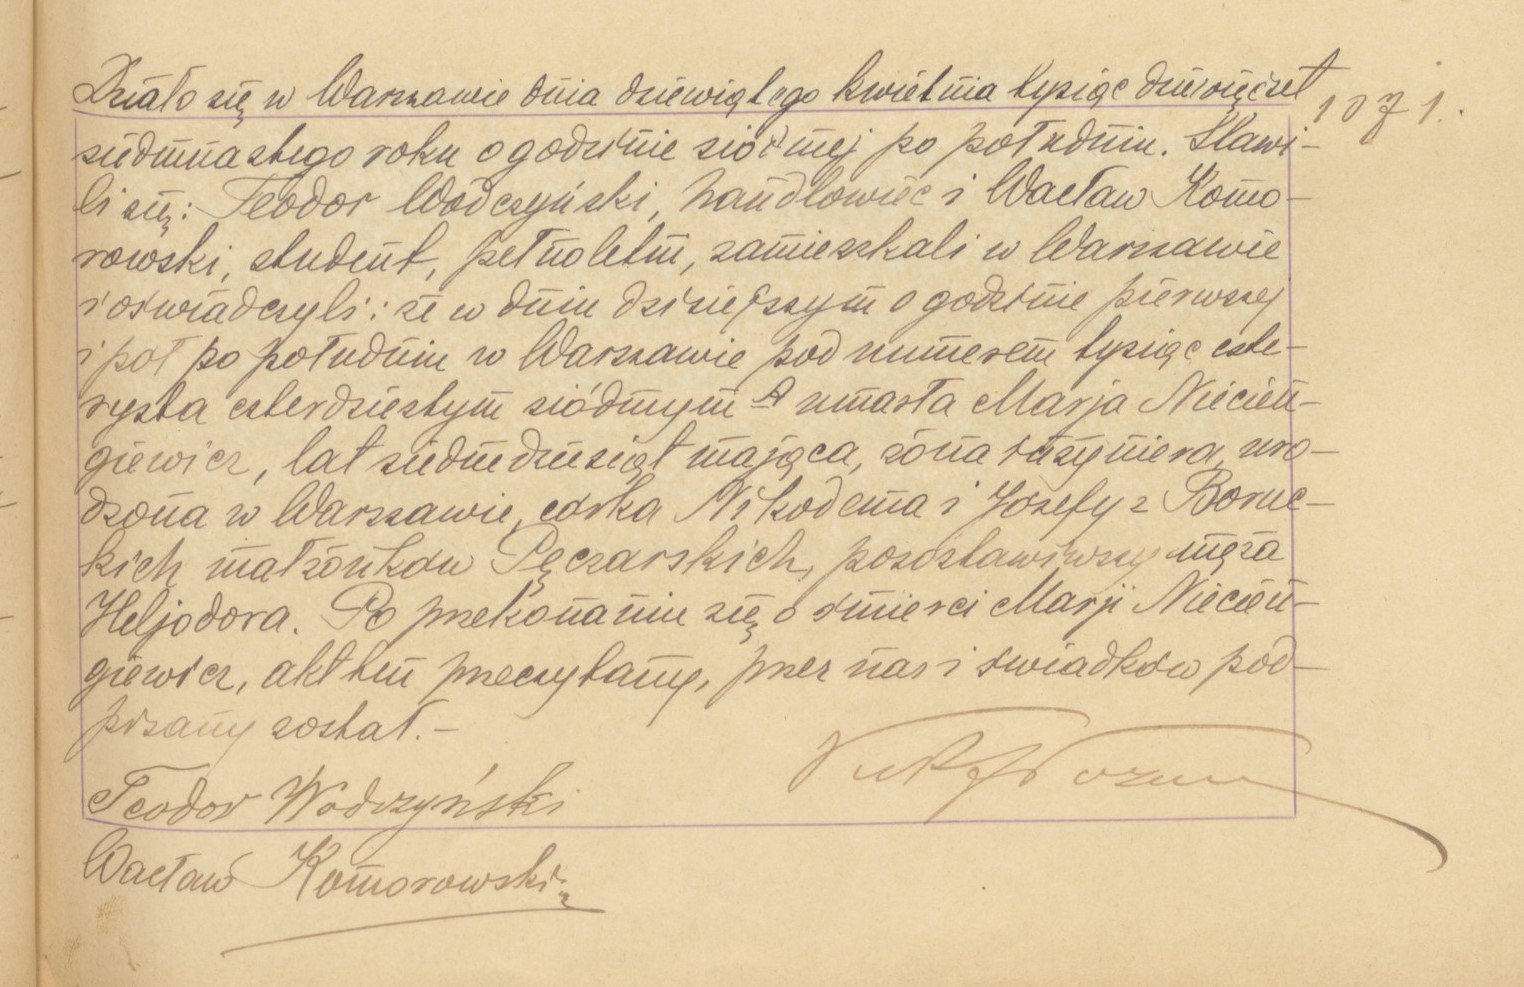 Działo się w Warszawie dnia dziewiątego kwietnia tysiąc dziewięćset
1071.
siedmnastego roku o godzinie siódmej po południu. Stawi-
li się: Teodor Wódczyński, handlowiec i Wacław Komo-
rowski, student, pełnoletni, zamieszkali w Warszawie
i oświadczyli: że w dniu dzisiejszym o godzinie pierwszej
i pół po południu w Warszawie pod numerem tysiąc czte-
rysta czterdziestym siódmym A umarła Marja Niecien-
giewicz, lat siedmdziesiąt mająca, żona inżyniera, uro-
dzona w Warszawie, córka Nikodema i Józefy z Boruc-
kich małżonków Pęczarskich, pozostawiwszy męża
Heljodora. Po przekonaniu się o śmierci Marji Niecien-
giewicz, akt ten przeczytany, przez nas i świadków pod-
pisany został.-
Teodor Wodczyński
Wacław Komorowski